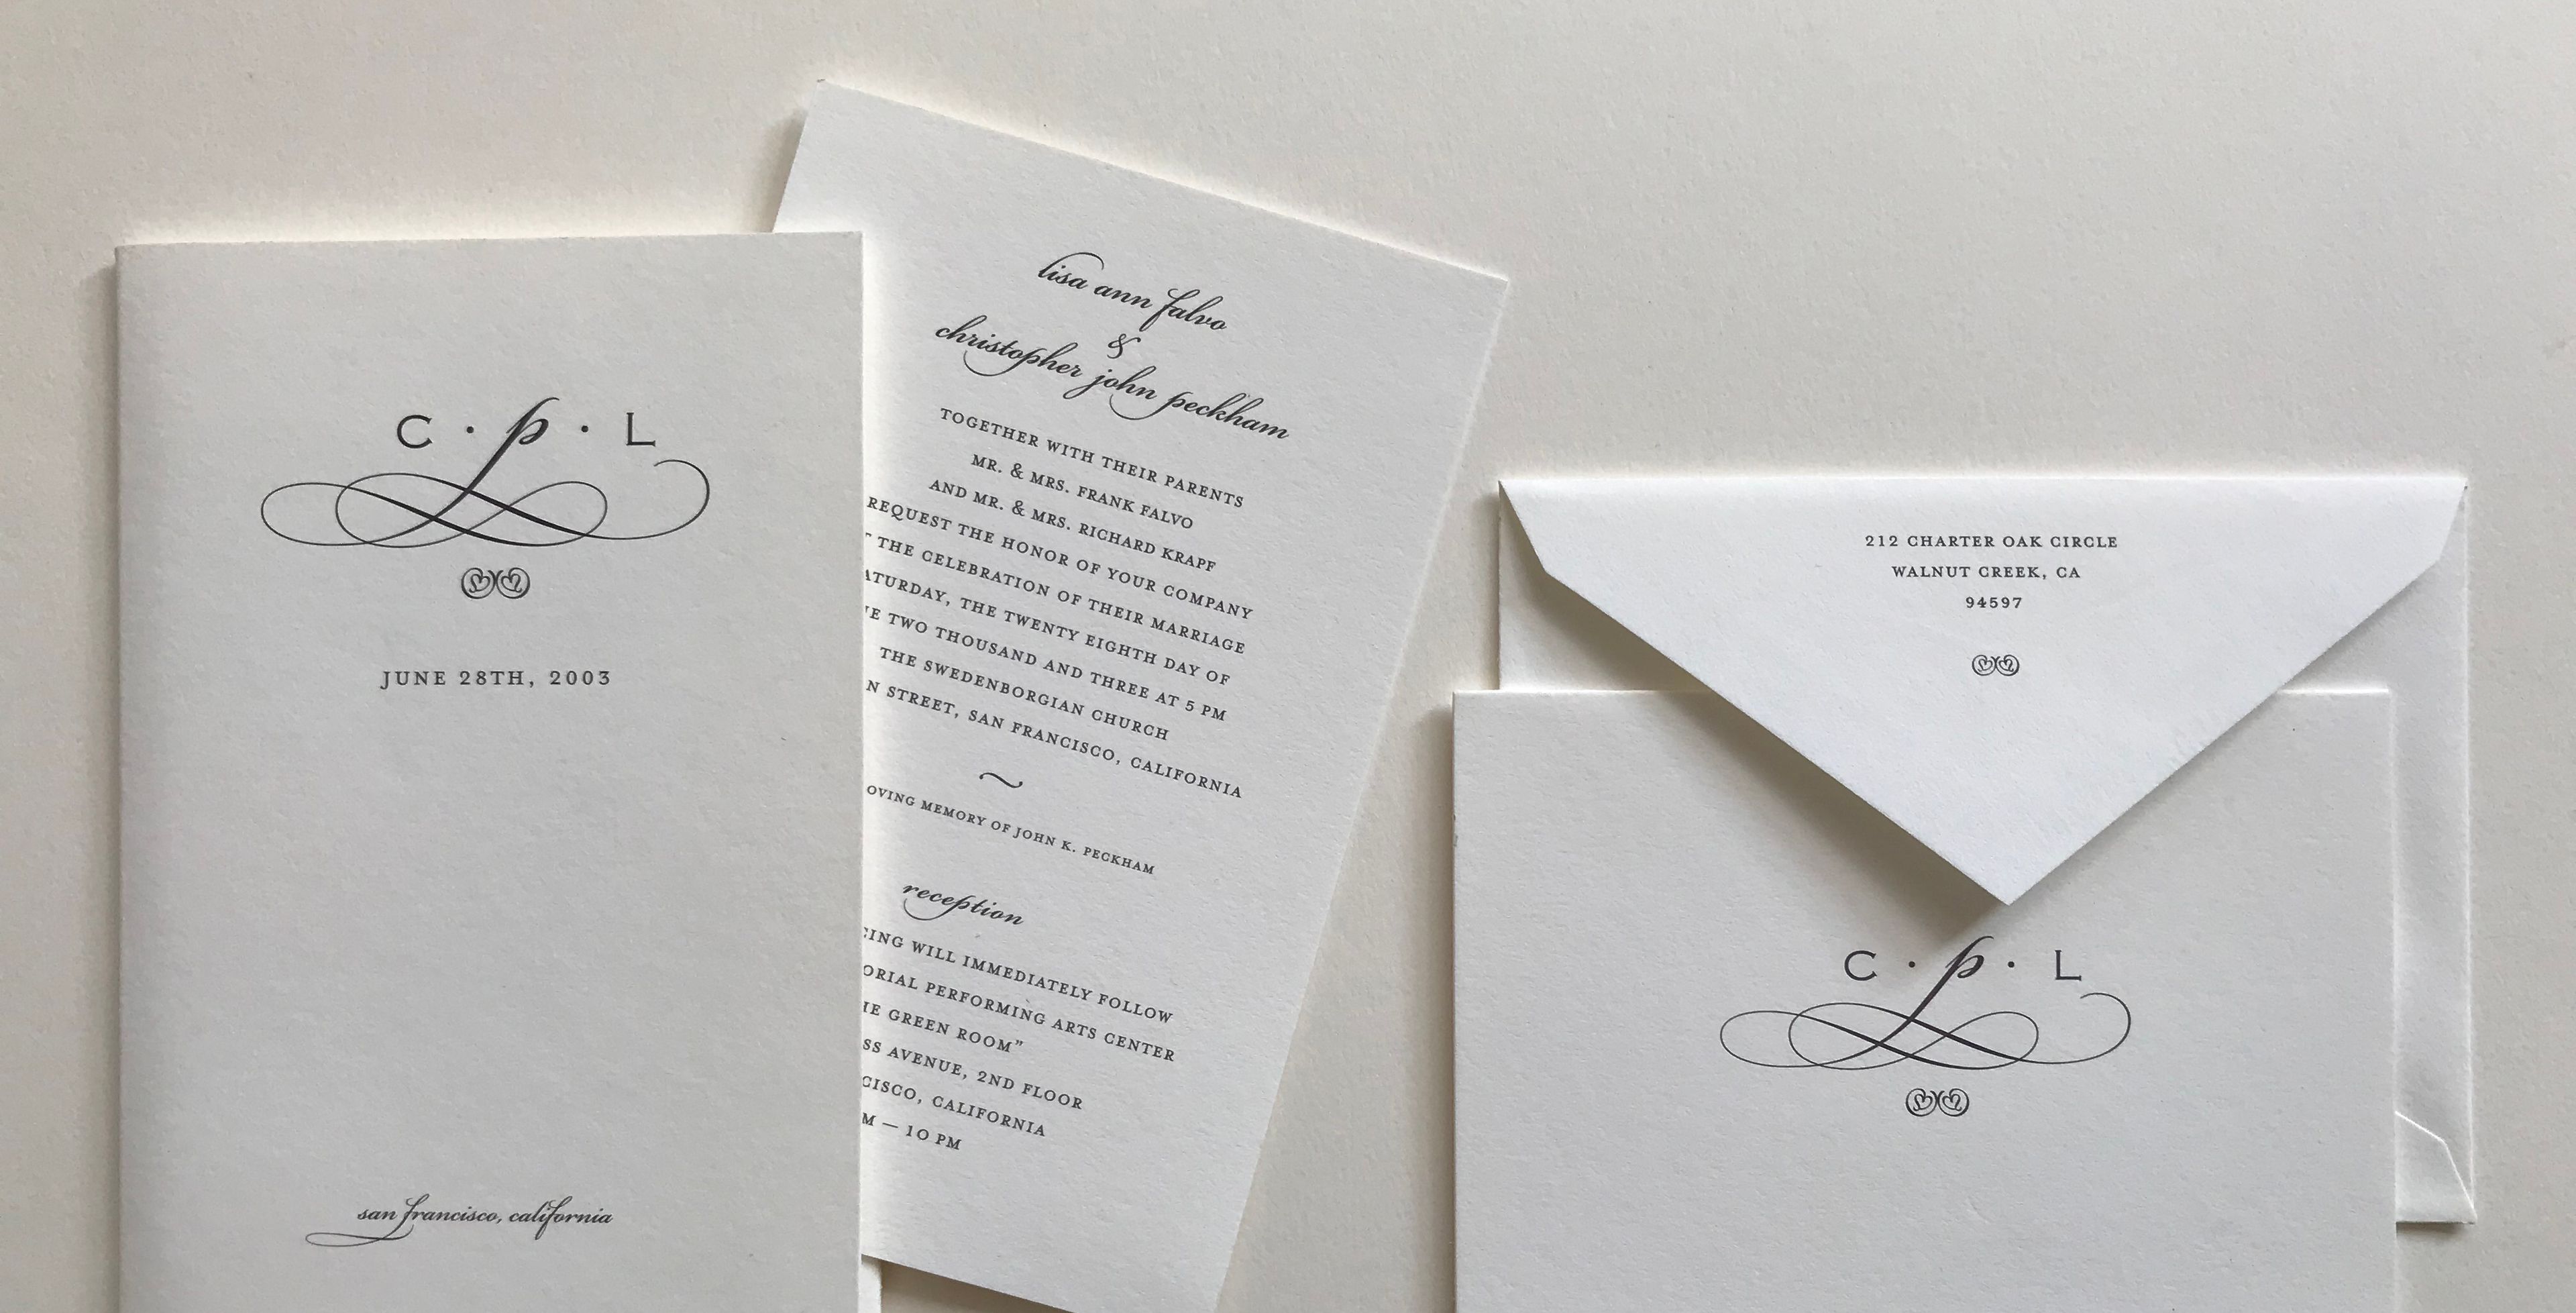 C · p · L
JUNE 28TH, 2003
san francisco, california
lisa ann falvo
&
christopher john peckham
TOGETHER WITH THEIR PARENTS
MR. & MRS. FRANK FALVO
AND MR. & MRS. RICHARD KRAPF
REQUEST THE HONOR OF YOUR COMPANY
THE CELEBRATION OF THEIR MARRIAGE
ATURDAY, THE TWENTY EIGHTH DAY OF
E TWO THOUSAND AND THREE AT 5 PM
THE SWEDENBORGIAN CHURCH
N STREET, SAN FRANCISCO, CALIFORNIA
~
OVING MEMORY OF JOHN K. PECKHAM
reception
CING WILL IMMEDIATELY FOLLOW
ORIAL PERFORMING ARTS CENTER
HE GREEN ROOM”
SS AVENUE, 2ND FLOOR
CISCO, CALIFORNIA
M — 10 PM
212 CHARTER OAK CIRCLE
WALNUT CREEK, CA
94597
C · p · L